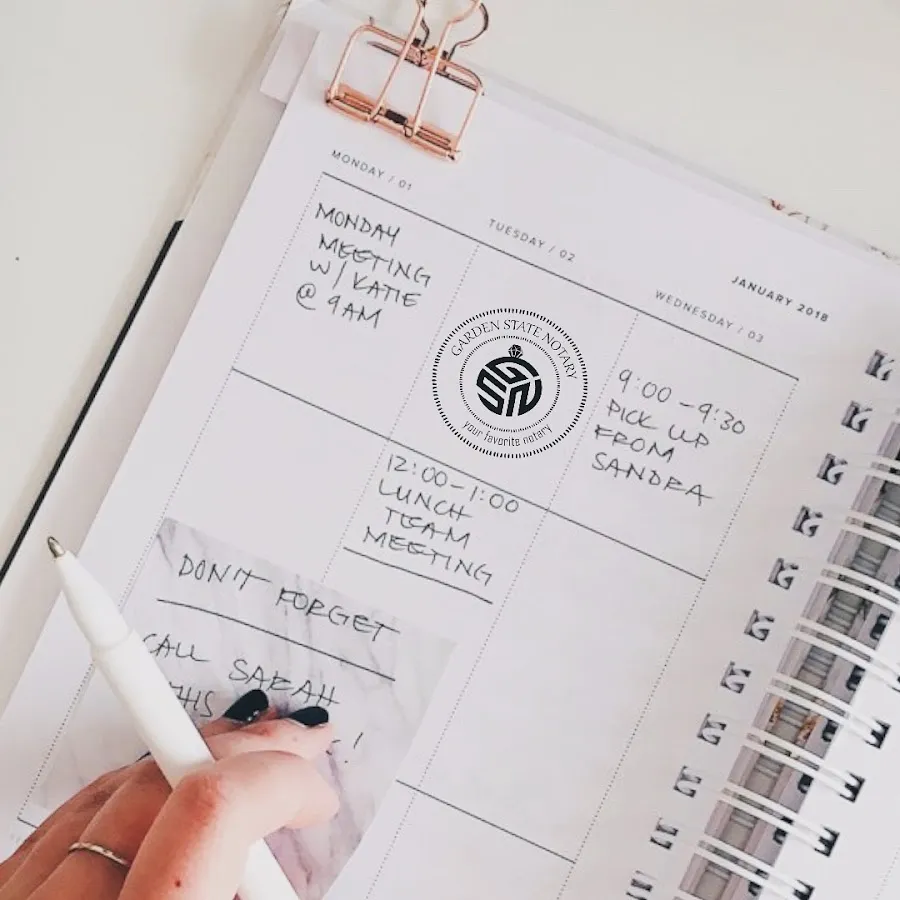 JANUARY 2018
MONDAY / 01
TUESDAY / 02
WEDNESDAY / 03
MONDAY
MEETING
W/ KATIE
@ 9AM
GARDEN STATE NOTARY
GSN
your favorite notary
9:00 - 9:30
PICK UP
FROM
SANDRA
12:00 - 1:00
LUNCH
TEAM
MEETING
DON'T FORGET
CALL SARAH
THIS
!